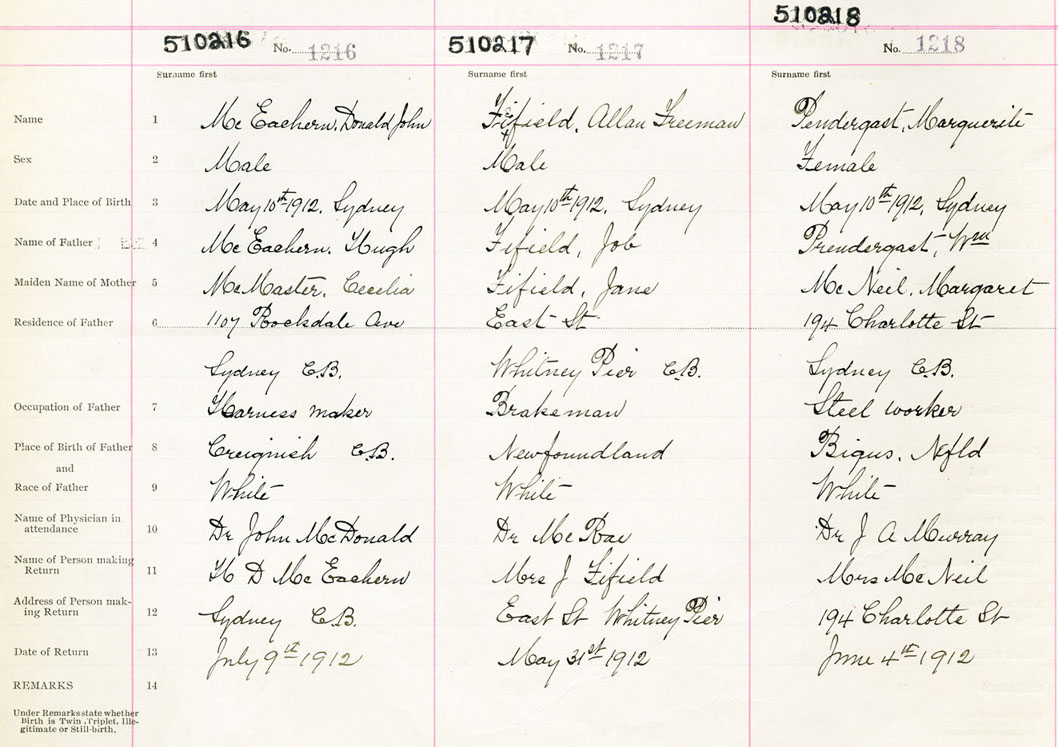 510218
510216 No. 1216 510217 No. 1217 No. 1218
Surname first Surname first Surname first
Name 1 McEachern, Donald John Fifield, Allan Freeman Pendergast, Marguerite
Sex 2 Male Male Female
Date and Place of Birth 3 May 10th 1912, Sydney May 10th 1912, Sydney May 10th 1912, Sydney
Name of Father 4 McEachern, Hugh Fifield, Job Prendergast, Wm
Maiden Name of Mother 5 McMaster, Cecelia Fifield, Jane McNeil, Margaret
Residence of Father 6 1107 Rockdale Ave East St 194 Charlotte St
Sydney C.B. Whitney Pier C.B. Sydney C.B.
Occupation of Father 7 Harness maker Brakeman Steel worker
Place of Birth of Father 8 Creignish C.B. Newfoundland Bigus, Nfld
and
Race of Father 9 White White White
Name of Physician in
attendance 10 Dr John McDonald Dr McRae Dr J A Murray
Name of Person making
Return 11 H D McEachern Mrs J Fifield Mrs McNeil
Address of Person mak-
ing Return 12 Sydney C.B. East St Whitney Pier 194 Charlotte St
Date of Return 13 July 9th 1912 May 31st 1912 June 4th 1912
REMARKS 14
Under Remarks state whether
Birth is Twin, Triplet, Ille-
gitimate or Still-birth.